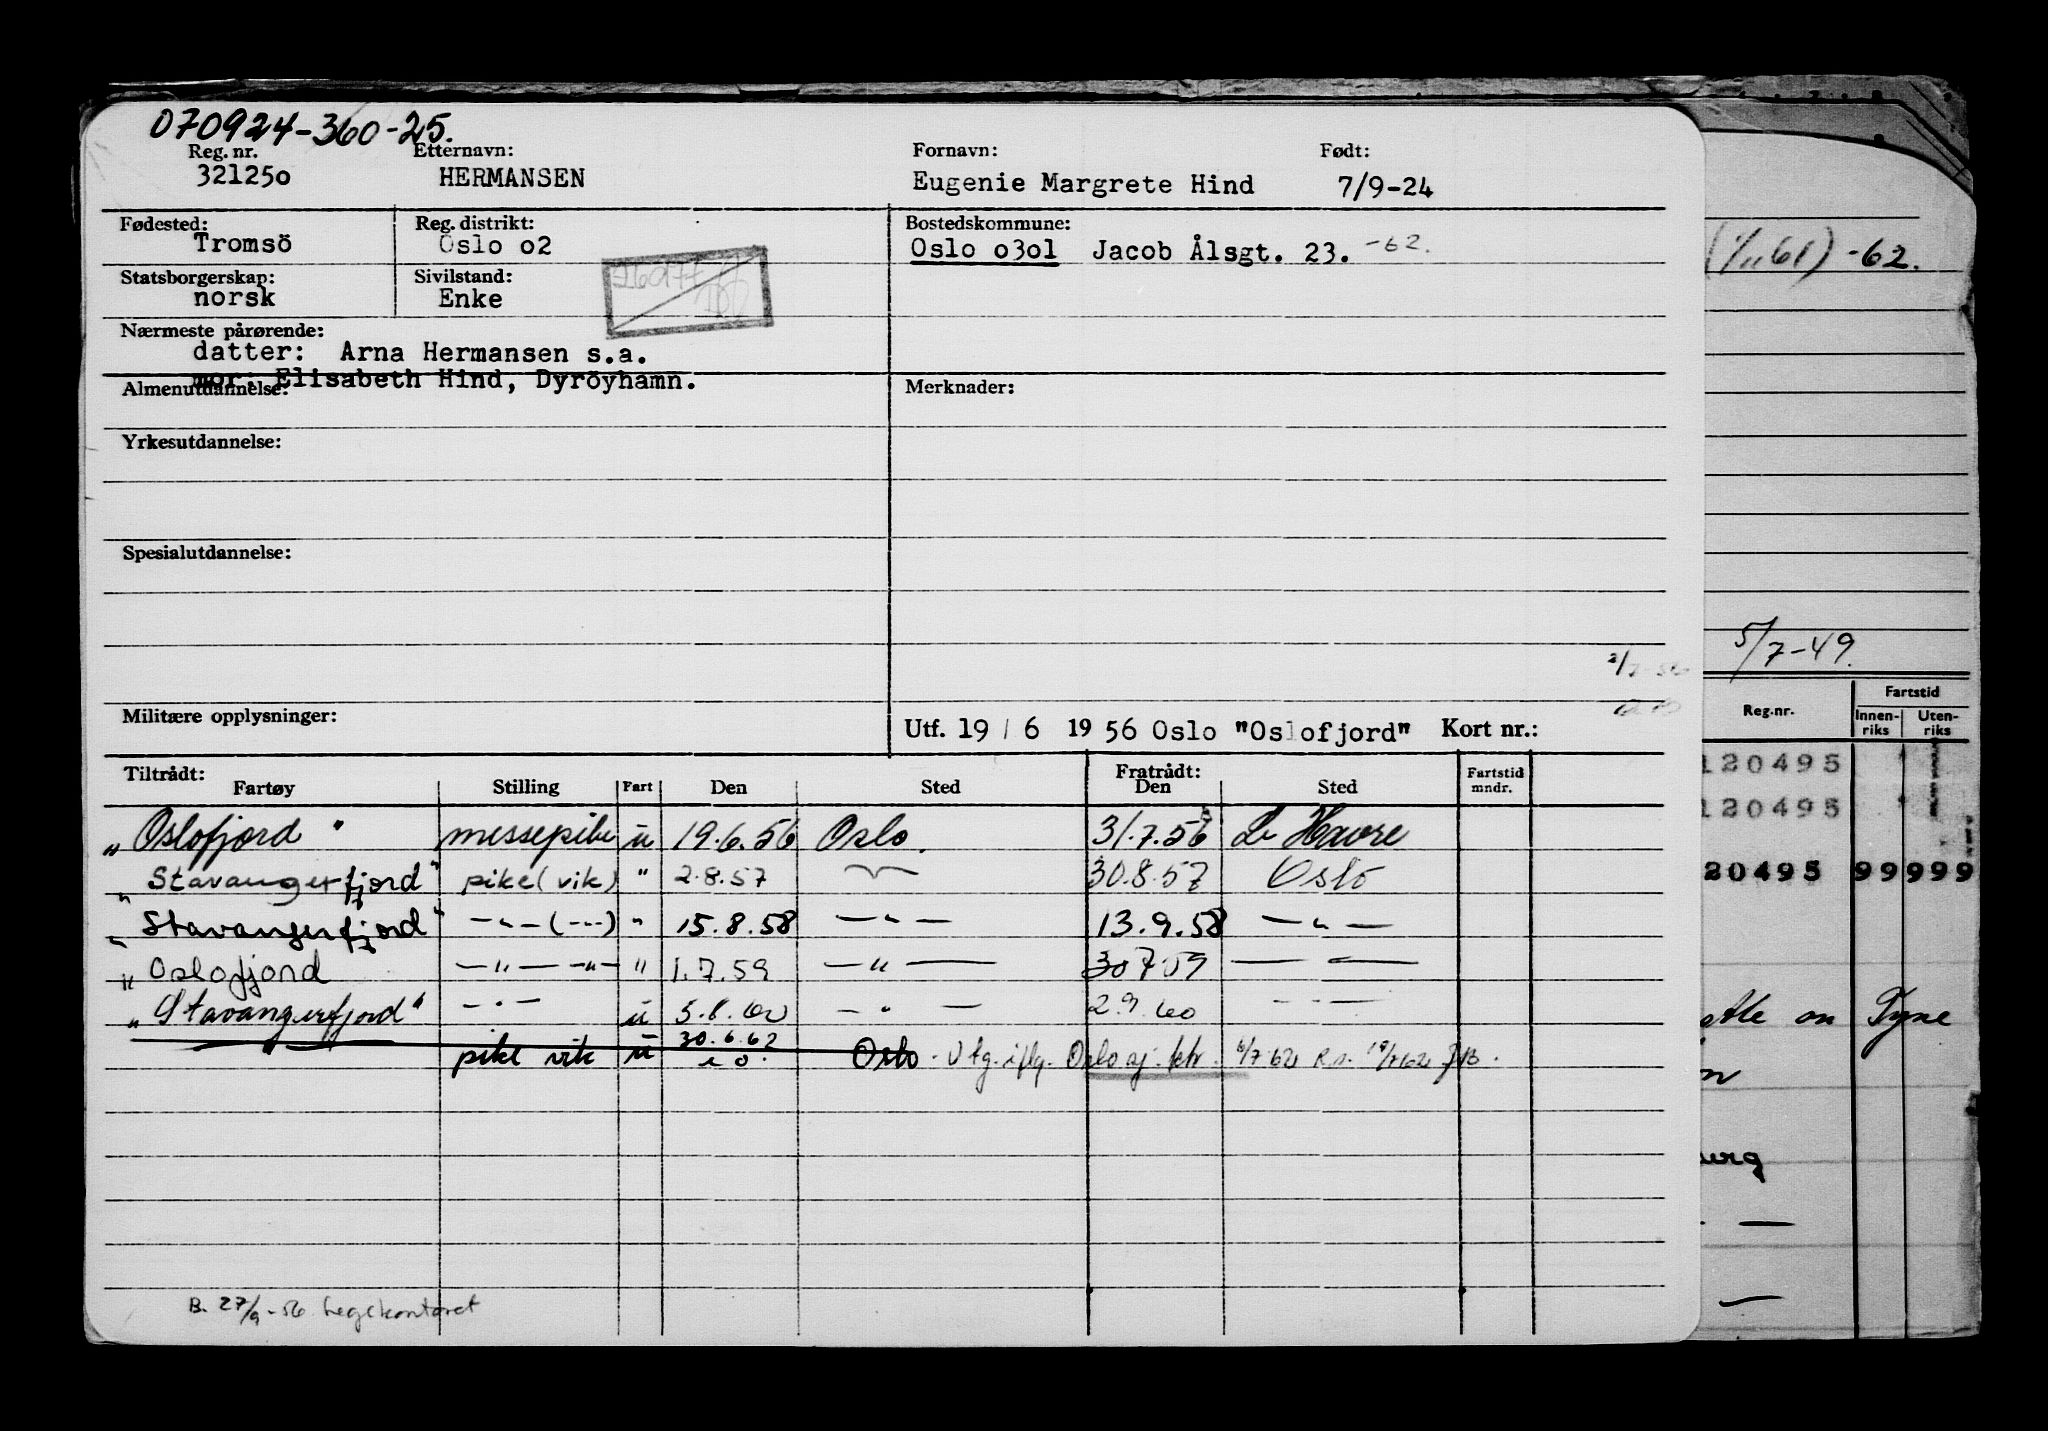 070924-360-25.
Reg. nr. Etternavn: Fornavn: Født:
321250 HERMANSEN Eugenie Margrete Hind 7/9-24
Fødested: Reg. distrikt: Bostedskommune:
Tromsö Oslo o2 Oslo o3o1 Jacob Ålsgt. 23. -62.
Statsborgerskap: Sivilstand:
norsk Enke
Nærmeste pårørende:
datter: Arna Hermansen s.a.
mor: Elisabeth Hind, Dyröyhamn.
Almenutdannelse: Merknader:
Yrkesutdannelse:
Spesialutdannelse:
Militære opplysninger: Utf. 19 / 6 19 56 Oslo "Oslofjord" Kort nr.:
Tiltrådt: Fratrådt: Fartstid
Fartøy Stilling Fart Den Sted Den Sted mndr.
"Oslofjord" messepike u 19.6.56 Oslo. 31.7.56 Le Havre
"Stavangerfjord" pike (vik) " 2.8.57 30.8.57 Oslo
"Stavangerfjord" —"— (---) " 15.8.58 —"— 13.9.58 —"—
"Oslofjord —"— —"— " 1.7.59 —"— 30 7 59
"Stavangerfjord" —"— u 5.8.60 —"— 2.9.60
30.6.62
pike vik u Oslo. Utg. iflg. Oslo sj. ktr. 6/7 62
B. 27/9-56 Legekontoret
-62.
5/7-49.
Fartstid
Reg.nr. Innen-riks Uten-riks
120495
120495
20495 99 999
on Tyne